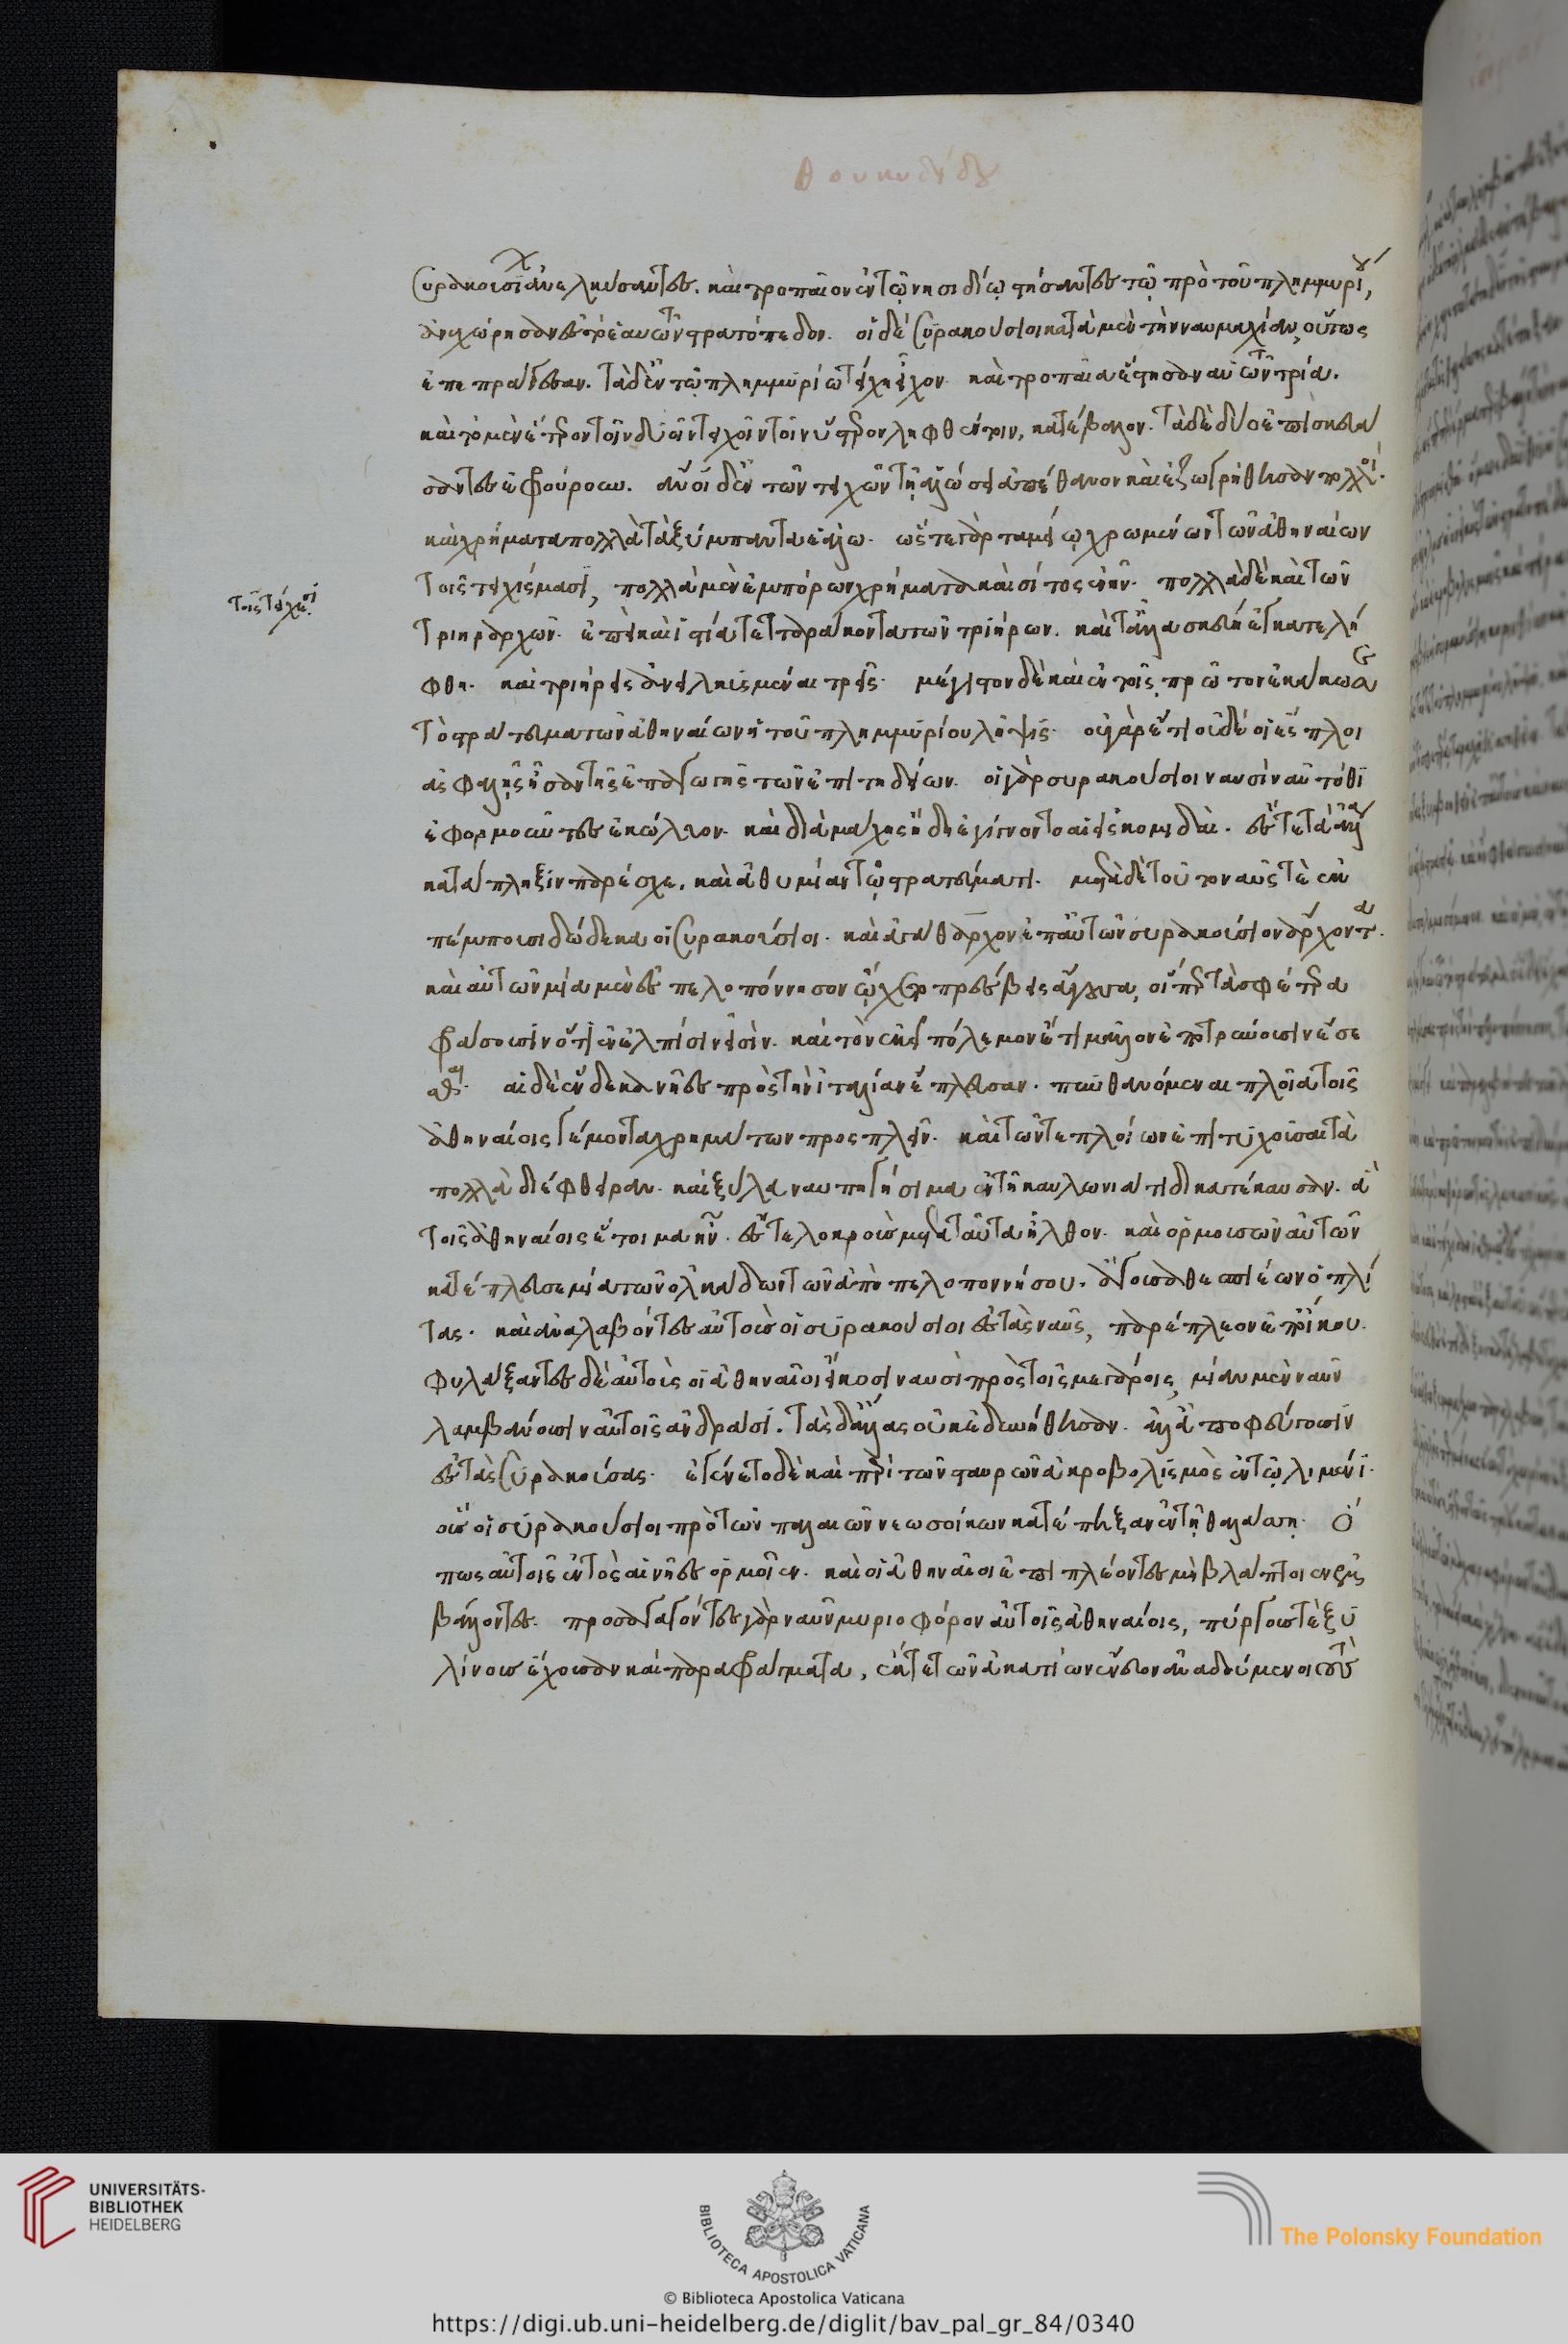 θουκυδίδου
Συρακουσίων ἀνελκύσαντες. καὶ τροπαῖον ἐν τῷ νησιδίῳ στήσαντες τῷ πρὸ τοῦ πλημμυρίου,
ἀνεχώρησαν ἐς τὸ ἑαυτῶν στρατόπεδον. οἱ δὲ Συρακούσιοι κατὰ μὲν τὴν ναυμαχίαν, οὕτως
ἐπεπράγεσαν. τὰ δ' ἐν τῷ πλημμυρίῳ τείχη εἶχον. καὶ τροπαῖα ἔστησαν αὐτῶν τρία.
καὶ τὸ μὲν ἕτερον τοῖν δυοῖν τειχοῖν τοῖν ὕστερον ληφθέντοιν, κατέβαλον. τὰ δὲ δύο ἐπισκευά
σαντες ἐφρούρουν. ἄνθρωποι δ' ἐν τῶν τειχῶν τῇ ἁλώσει ἀπέθανον καὶ ἐζωγρήθησαν πολλοί.
καὶ χρήματα πολλὰ τὰ ξύμπαντα ἑάλω. ὥστε γὰρ ταμιείῳ χρωμένων τῶν ἀθηναίων
τοῖς τειχίσμασι, πολλὰ μὲν ἐμπόρων χρήματα καὶ σῖτος ἐνῆν. πολλὰ δὲ καὶ τῶν
τοῖς τείχεσι
τριηράρχων. ἐπεὶ καὶ ἱστία τετταράκοντα τῶν τριήρων. καὶ τἄλλα σκεύη ἐγκατελή
φθη. καὶ τριήρεις ἀνειλκυσμέναι τρεῖς. μέγιστον δὲ καὶ ἐν τοῖς πρῶτον ἐκάκωσε
τὸ στράτευμα τῶν ἀθηναίων ἡ τοῦ πλημμυρίου λῆψις. οὐ γὰρ ἔτι οὐδὲ οἱ ἔσπλοι
ἀσφαλεῖς ἦσαν τῆς ἐπαγωγῆς τῶν ἐπιτηδείων. οἱ γὰρ συρακούσιοι ναυσὶν αὐτόθι
ἐφορμοῦντες ἐκώλυον. καὶ διὰ μάχης ἤδη ἐγίγνοντο αἱ ἐσκομιδαί. ἔς τε τὰ ἄλλα
κατάπληξιν παρέσχε. καὶ ἀθυμίαν τῷ στρατεύματι. μετὰ δὲ τοῦτο ναῦς τε ἐκ
πέμπουσι δώδεκα οἱ Συρακούσιοι. καὶ ἀγάθαρχον ἐπ' αὐτῶν συρακούσιον ἄρχοντα.
καὶ αὐτῶν μία μὲν ἐς πελοπόννησον ᾤχετο πρέσβεις ἄγουσα, οἵπερ τὰ σφέτερα
φράσουσιν ὅτι ἐν ἐλπίσιν εἰσὶν. καὶ τὸν ἐκεῖ πόλεμον ἔτι μᾶλλον ἐποτρύνουσι γενέσ
θαι. αἱ δὲ ἕνδεκα νῆες πρὸς τὴν ἰταλίαν ἔπλευσαν. πυνθανόμεναι πλοῖα τοῖς
ἀθηναίοις γέμοντα χρημάτων προσπλεῖν. καὶ τῶν τε πλοίων ἐπιτυχοῦσαι τὰ
πολλὰ διέφθειραν. καὶ ξύλα ναυπηγήσιμα ἐν τῇ καυλωνιάτιδι κατέκαυσαν. ἃ
τοῖς ἀθηναίοις ἕτοιμα ἦν. ἔς τε λοκροὺς μετὰ ταῦτα ἦλθον. καὶ ὁρμουσῶν αὐτῶν
κατέπλευσε μία τῶν ὁλκάδων τῶν ἀπὸ πελοποννήσου. ἄγουσα θεσπιέων ὁπλί
τας. καὶ ἀναλαβόντες αὐτοὺς οἱ συρακούσιοι ἐς τὰς ναῦς, παρέπλεον ἐπ' οἴκου.
φυλάξαντες δὲ αὐτοὺς οἱ ἀθηναῖοι εἴκοσι ναυσὶ πρὸς τοῖς μεγάροις, μίαν μὲν ναῦν
λαμβάνουσιν αὐτοῖς ἀνδράσι. τὰς δ' ἄλλας οὐκ ἐδυνήθησαν. ἀλλ' ἀποφεύγουσιν
ἐς τὰς Συρακούσας. ἐγένετο δὲ καὶ περὶ τῶν σταυρῶν ἀκροβολισμὸς ἐν τῷ λιμένι.
οὓς οἱ συρακούσιοι πρὸ τῶν παλαιῶν νεωσοίκων κατέπηξαν ἐν τῇ θαλάσσῃ. ὅ
πως αὐτοῖς ἐντὸς αἱ νῆες ὁρμοῖεν. καὶ οἱ ἀθηναῖοι ἐπιπλέοντες μὴ βλάπτοιεν ἐμ
βάλλοντες. προσαγαγόντες γὰρ ναῦν μυριοφόρον αὐτοῖς ἀθηναίοις, πύργους τε ξυ
λίνους ἔχουσαν καὶ παραφράγματα, ἔκ τε τῶν ἀκατίων ὤνευον ἀναδούμενοι τοὺς
UNIVERSITÄTS-
BIBLIOTHEK
HEIDELBERG
BIBLIOTECA APOSTOLICA VATICANA
The Polonsky Foundation
© Biblioteca Apostolica Vaticana
https://digi.ub.uni-heidelberg.de/diglit/bav_pal_gr_84/0340